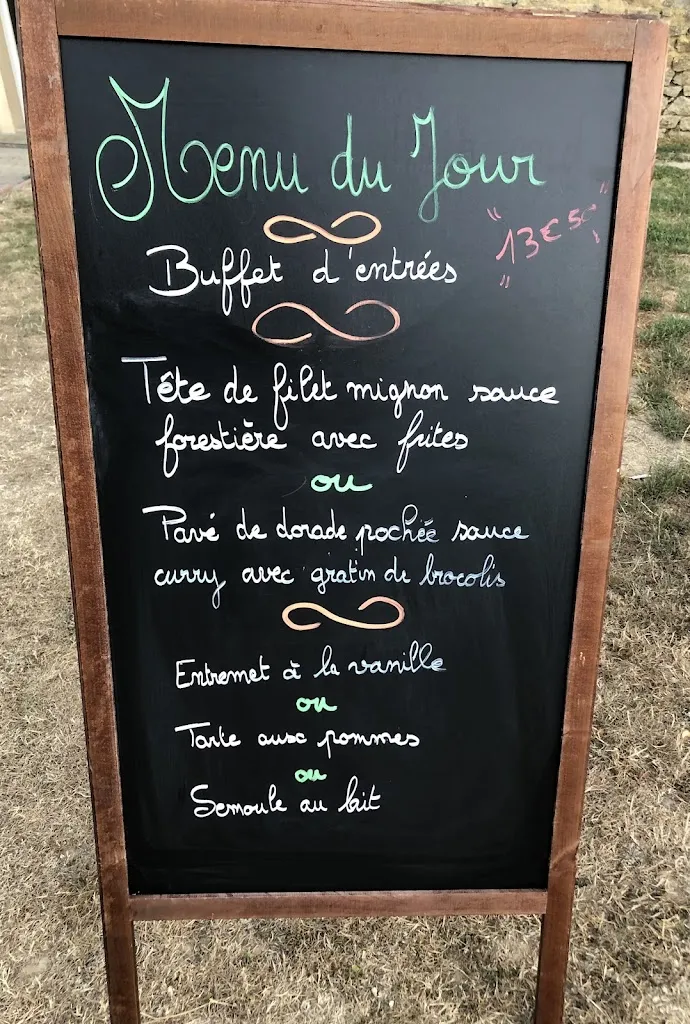 Menu du Jour
"13€50"
Buffet d'entrées
Tête de filet mignon sauce
forestière avec frites
ou
Pavé de dorade pochée sauce
curry avec gratin de brocolis
Entremet à la vanille
ou
Tarte aux pommes
ou
Semoule au lait